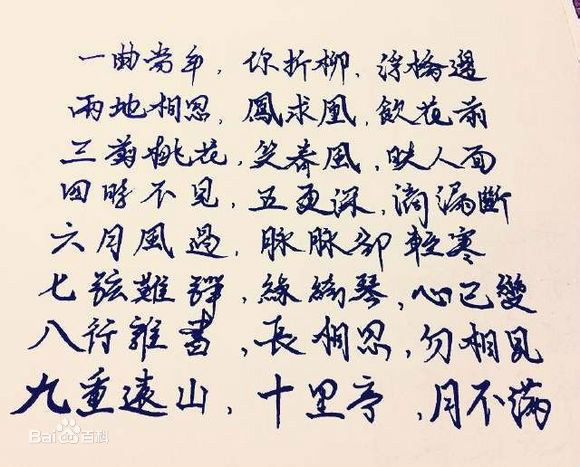 一曲當年，你折柳，浮橋邊
兩地相思，鳳求凰，飲花前
三菊桃花，笑春風，映人面
四時不見，五更深，滴漏斷
六月風過，脉脉卻輕寒
七弦難彈，綠綺琴，心已變
八行書，長相思，勿相見
九重遠山，十里亭，月不滿
Bai百科